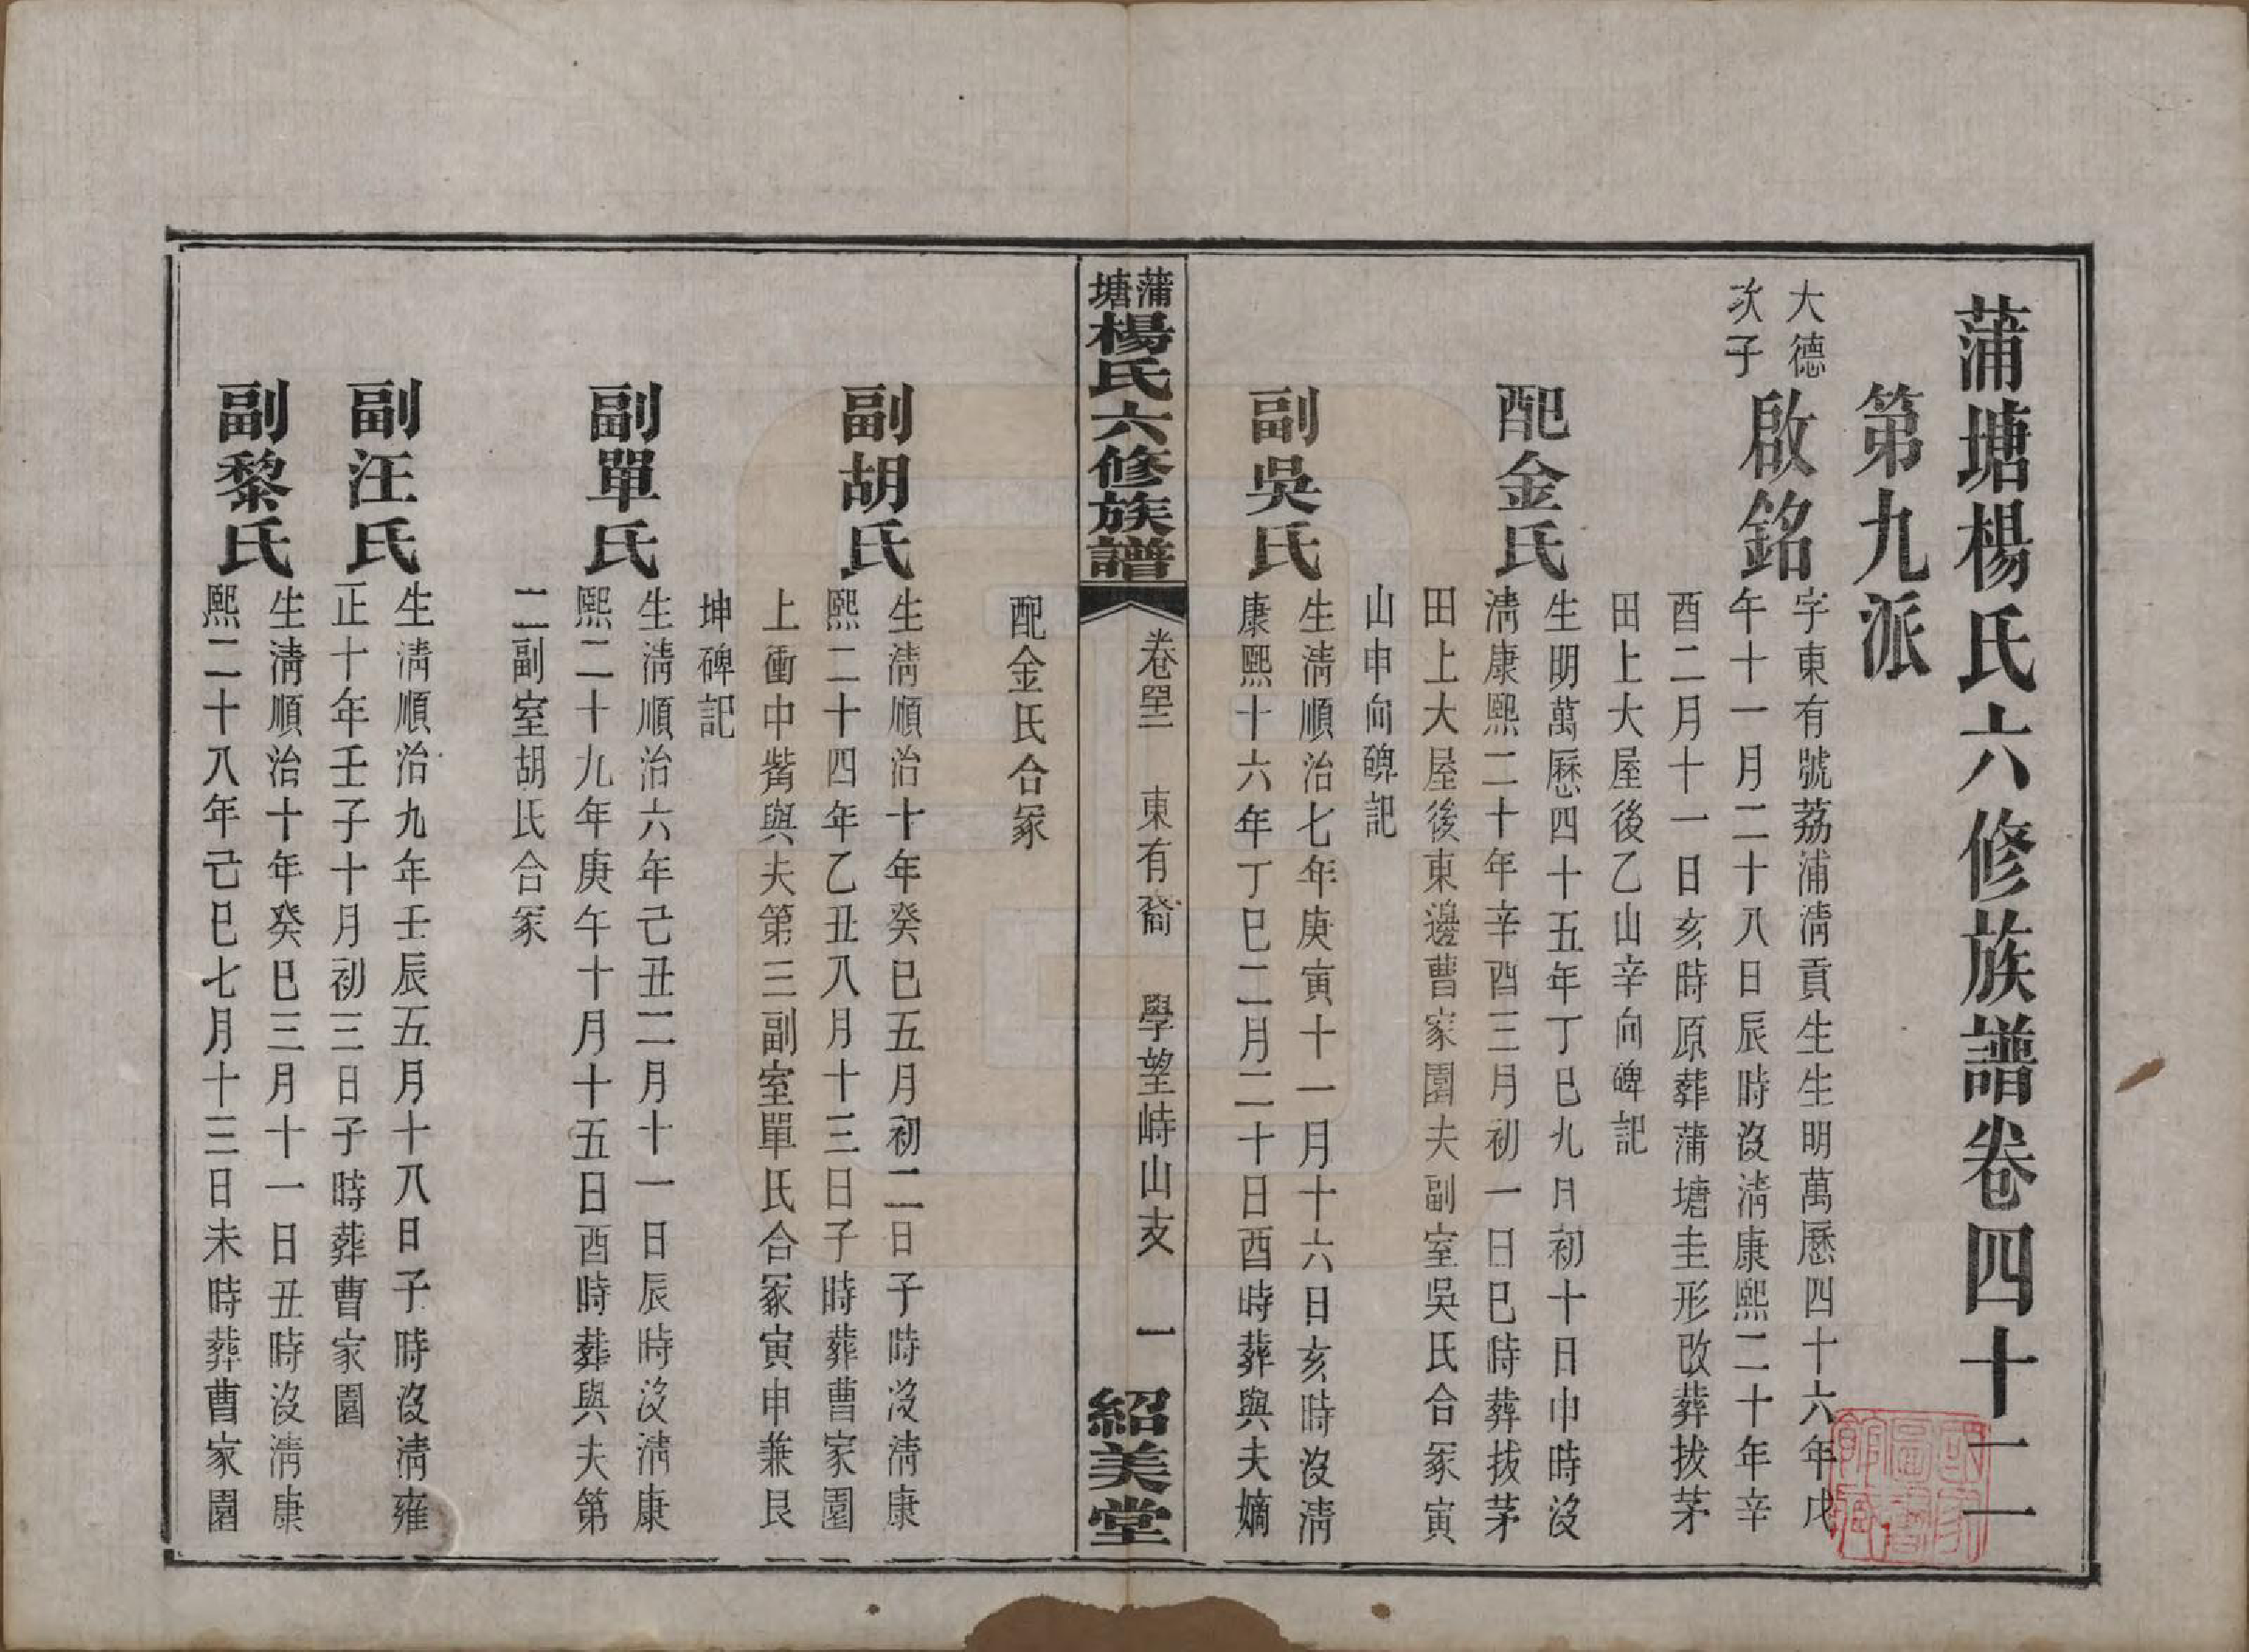 蒲塘楊氏六修族譜卷四十二
第九派
大德
次子
啟銘
字東有號荔浦淸貢生生明萬曆四十六年戊
午十一月二十八日辰時沒淸康熙二十年辛
酉二月十一日亥時原葬蒲塘圭形改葬拔茅
田上大屋後乙山辛向碑記
配金氏
生明萬曆四十五年丁巳九月初十日申時沒
淸康熙二十年辛酉三月初一日巳時葬拔茅
田上大屋後東邊曹家園夫副室吳氏合冢寅
山申向碑記
副吳氏
生淸順治七年庚寅十一月十六日亥時沒淸
康熙十六年丁巳二月二十日酉時葬與夫嫡
蒲塘楊氏六修族譜
卷四十二 東有裔 學望峙山支 一
紹美堂
配金氏合冢
副胡氏
生淸順治十年癸巳五月初二日子時沒淸康
熙二十四年乙丑八月十三日子時葬曹家園
上衝中嘴與夫第三副室單氏合冢寅申兼艮
坤碑記
副單氏
生淸順治六年己丑二月十一日辰時沒淸康
熙二十九年庚午十月十五日酉時葬與夫第
二副室胡氏合冢
副汪氏
生淸順治九年壬辰五月十八日子時沒淸雍
正十年壬子十月初三日子時葬曹家園
副黎氏
生淸順治十年癸巳三月十一日丑時沒淸康
熙二十八年己巳七月十三日未時葬曹家園